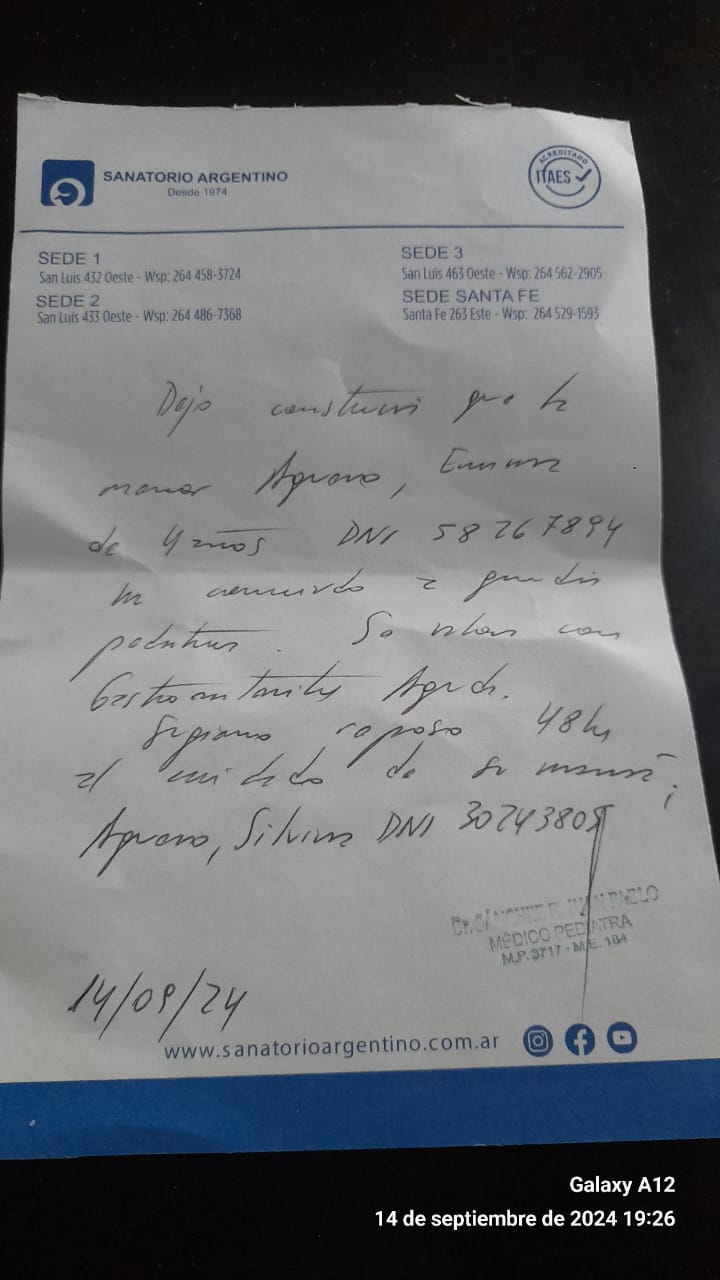 SANATORIO ARGENTINO
Desde 1974
ACREDITADO
ITAES
SEDE 1
San Luis 432 Oeste - Wsp: 264 458-3724
SEDE 2
San Luis 433 Oeste - Wsp: 264 486-7368
SEDE 3
San Luis 463 Oeste - Wsp: 264 562-2905
SEDE SANTA FE
Santa Fe 263 Este - Wsp: 264 529-1593
Dejo constancia que la
menor
de 4 años DNI 58267894
ha concurrido a guardia
pediátrica. Se
Gastroenteritis Aguda.
Sugiero reposo 48hs
al cuidado de su mamá;
Silvina DNI 30243805
Dr. SÁNCHEZ R. JUAN PABLO
MÉDICO PEDIATRA
M.P. 3717 - M.E. 184
14/09/24
www.sanatorioargentino.com.ar
Galaxy A12
14 de septiembre de 2024 19:26